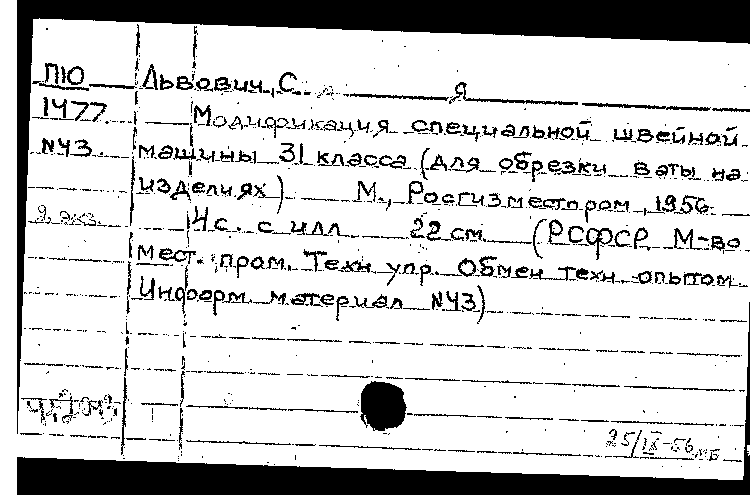 ПЮ Львович, С. Я
1477 Модификация специальной швейной
N43. машины 31 класса (для обрезки ваты на
изделиях) М., Росгизместпром, 1956
2 экз. 4с. с илл 22 см (РСФСР. М-во
мест. пром. Техн упр. Обмен техн опытом
Информ. материал N43)
25/IX-56 МБ